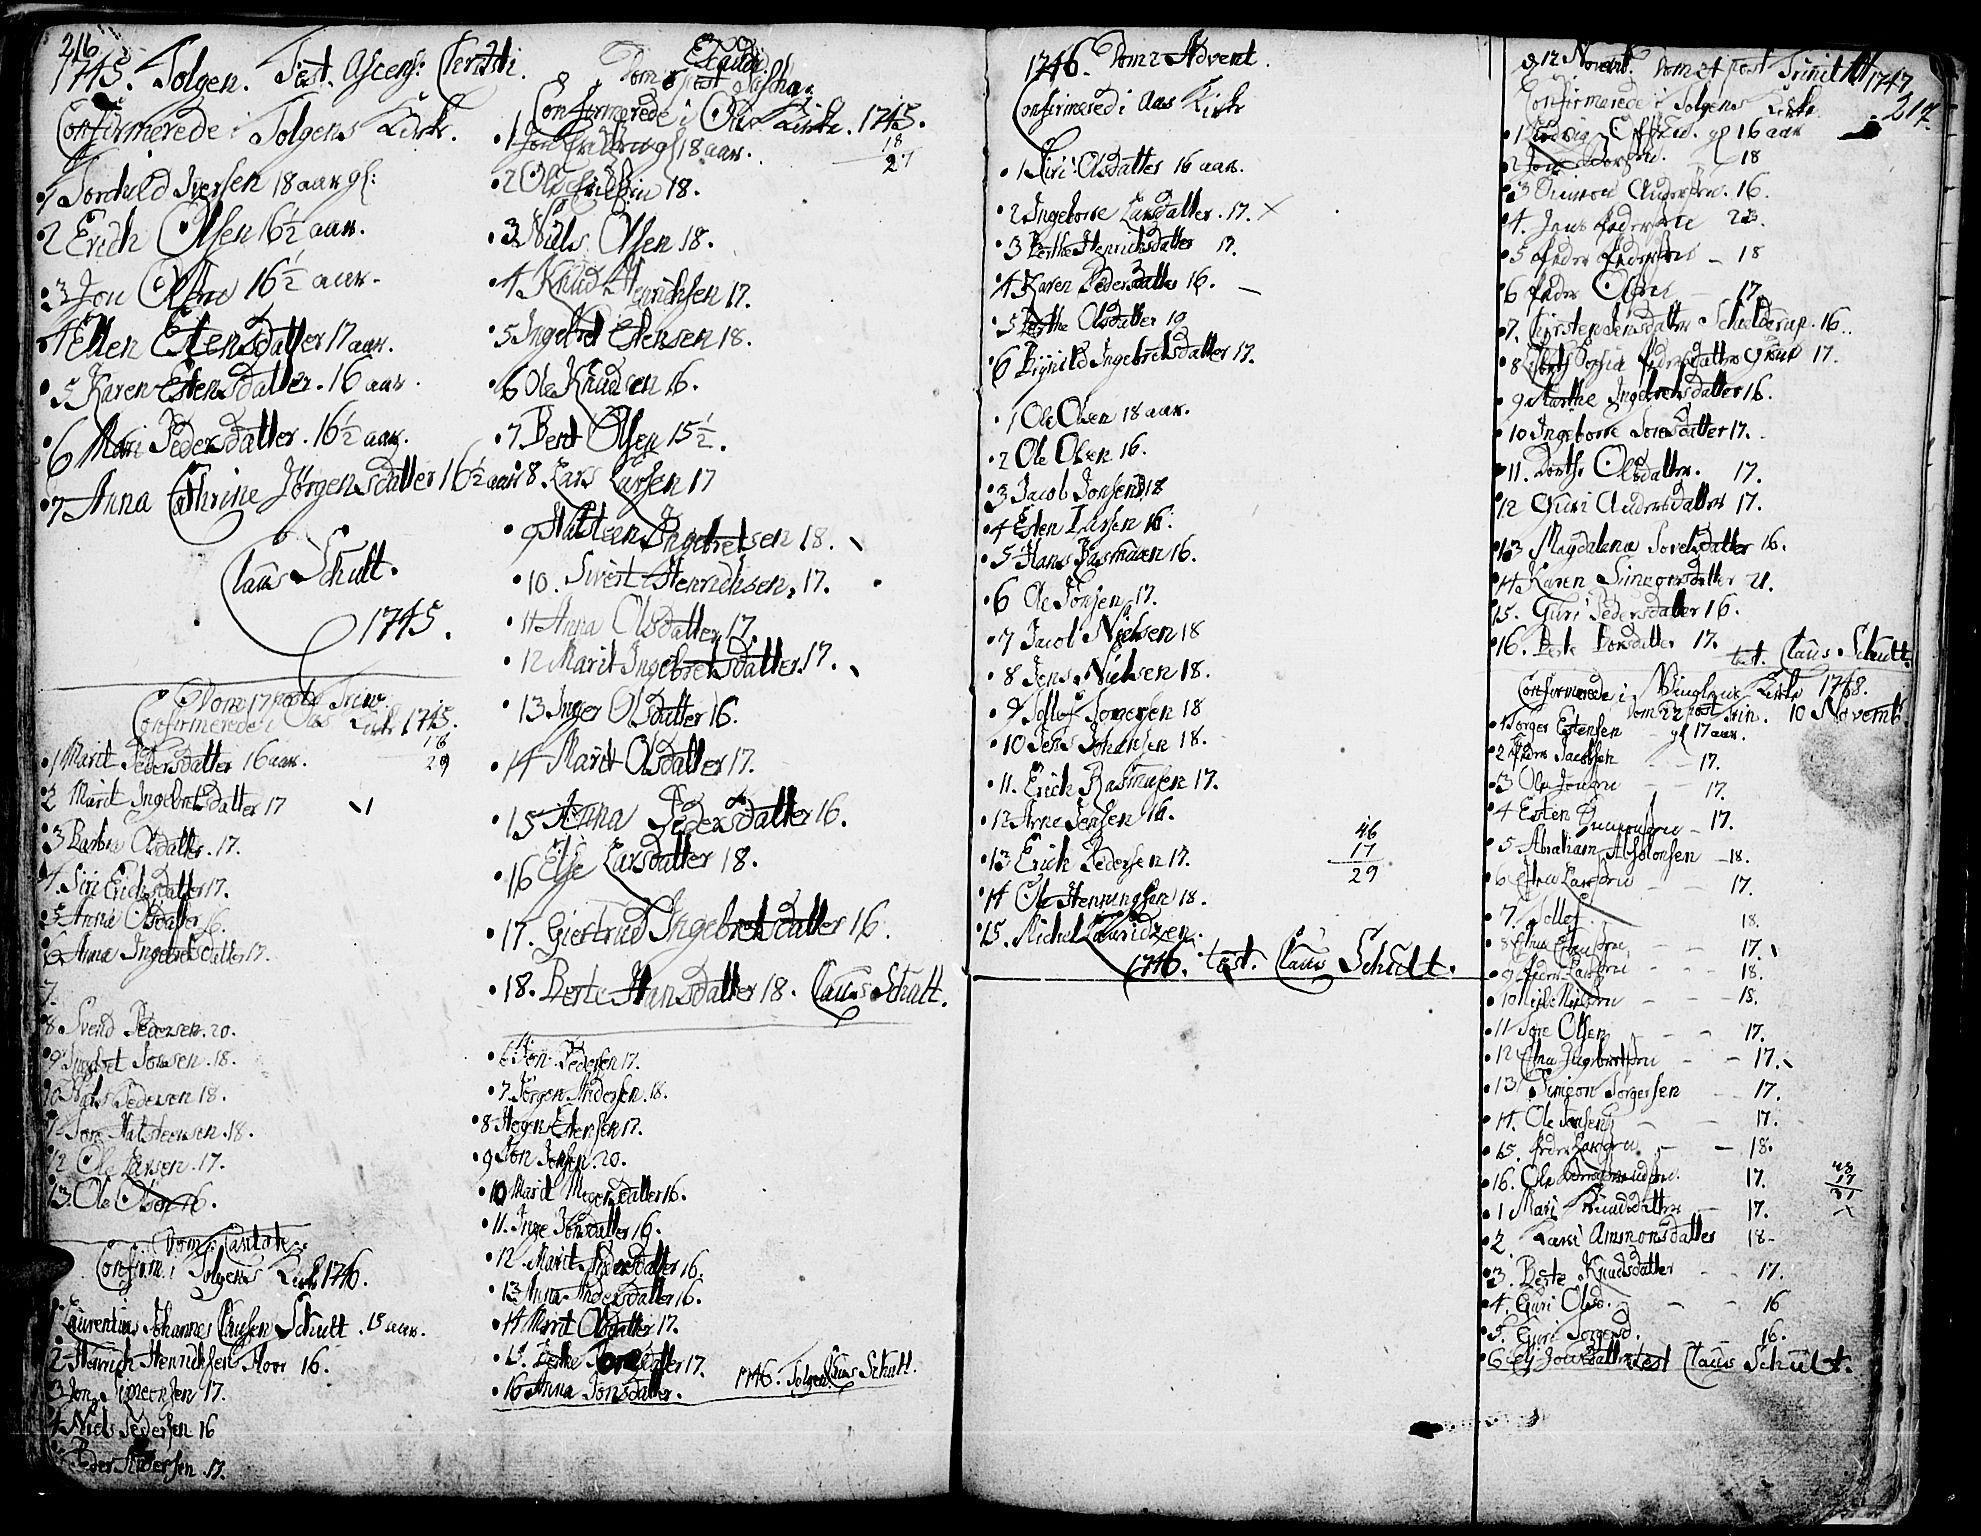 216
1745. Tolgen. Fest. Ascens: Christi.
Confirmerede i Tolgens Kirke.
1 Torchild Iversen 18 aar gl:
2 Erich Olsen 16½ aar.
3 Jon Olsen 16½ aar.
4 Ellen Estensdatter 17 aar.
5 Karen Estensdatter. 16 aar.
6 Mari Pedersdatter. 16½ aar.
7 Anna Cathrine Jörgensdatter 16½ aar
Claus Schult.
1745.
Dom 17 post Trin.
Confirmerede i Aas Kirke 1745.
1 Marit Pedersdatter 16 aar.
2 Marit Ingebretsdatter 17
3 Barbro Olsdatter. 17.
4 Siri Erichsdatter 17.
5 Anna Olsdatter 16.
6 Anna Ingebretsdatter 17.
7.
8 Svend Pedersen. 20.
9 Ingebret Jonsen. 18.
10 Pedersen 18.
Halsteensen. 18.
12 Ole Larsen. 17.
13. Ole Olsen 16.
Dom: Cantate
Confirm. i Tolgens Kirke 1746.
1 Laurentius Johannes Clausen Schult. 15 aar.
2 Henrich Henrichsen Floor 16.
3 Jon Simeonsen 17.
4 Niels Pedersen 16
5 Peder Andersen. 17.
Exaudi
Dom 6 post Pascha.
Confirmerede i Aas Kirke. 1745.
18
27
1 Jon gl 18 aar.
2 Ole 18.
3 Niels Olsen 18.
4 Knud Henrichsen 17.
5 Ingebret Estensen 18.
6 Ole Knudsen 16.
7 Bent Olsen 15½.
8. Lars Larsen 17
9 Halsteen Ingebretsen 18.
10. Sivert Henrichsen. 17.
11 Anna Olsdatter 17.
12 Marit Ingebretsdatter 17.
13 Inger Olsdatter 16.
14 Marit Olsdatter 17.
15 Anna Pedersdatter 16.
16 Else Larsdatter 18.
17. Giertrud Ingebretsdatter 16.
18. Berte Hansdatter 18. Claus Schult.
6 Jon Pedersen 17.
7 Jörgen Andersen. 18.
8 Hogen Estensen 17.
9 Jon Jonsen. 20.
10 Marit Mogensdatter 16.
11. Inge Jonsdatter 16.
12. Marit Andersdatter 16.
13 Anna Andersdatter 16.
14 Marit Olsdatter 17.
15. Berte 17.
16 Anna Jonsdatter. 1746. Tolgen Claus Schult.
1746. Dom 2 Advent.
Confirmered i Aas Kirke
1 Siri Olsdatter 16 aar.
2 Ingeborre Larsdatter. 17. ×
3 Berthe Henrichsdatter 17.
4 Karen Pedersdatter 16.
5 Berthe Olsdatter 19
6 Ingebretsdatter 17.
1 Ole Olsen 18 aar.
2 Ole Olsen 16.
3 Jacob Jonsen 18
4 Esten Larsen 16.
5 Hans Rasmusen 16.
6 Ole Jonsen 17.
7 Jacob Nielsen 18
8 Jens Nielsen 18.
9 Tollof Jorgensen 18
10 Jens Johansen 18.
11. Erich Rasmusen 17.
12 Arne Jensen 16.
13 Erich Pedersen 17.
14 Ole Henningsen 18.
15. Michel Lauridzen.
46
17
29
1746. test. Claus Schult.
12 Novemb. Dom 24 post Trinit 1747
217.
Confirmerede i Tolgens Kirke
1 gl 16 aar
2 18
3 Andersen. 16.
4. Jens Pedersen 23.
5 Peder Pedersen 18
6 Peder Olsen 17.
7. Kirsten Jensdatter Schielderup. 16.
8 Sophia Pedersdatter 17.
9 Marthe Ingebretsdatter 16.
10 Ingeborre Jonsdatter 17.
11. Dorthe Olsdatter. 17.
12 Guri Andersdatter 17.
13 Magdalena Torelsdatter 16.
14 Karen Simeonsdatter 21.
15. Guri Pedersdatter 16.
16. Berte 17. test. Claus Schult.
Confirmerede i Vinglens Kirke 1748.
Dom 22 post Trin. 10 Novemb.
1 Torger Estensen gl 17 aar.
2 Peder Jacobsen 17.
3 Ole Jonsen 17.
4 Esten 17.
5 Abraham Absolonsen 18.
6 Larsen 17.
7. Tollof 18.
8 17.
9 Peder Larsen 18.
10 Niels Nielsen 18.
11 Tore Olsen 17.
12 Ingebretsen 17.
13 Simeon Torgersen 17.
14. Ole Jensen 17.
15. Peder Larsen 18.
16. Ole 17.
1 Mari Knudsdatter 17.
2 Kari Ammonsdatter 18
3. Berte Knudsdatter 17.
4. Guri Olsd. 16
5. Guri Torgersd. 16.
6 Jonsdatter test Claus Schult.